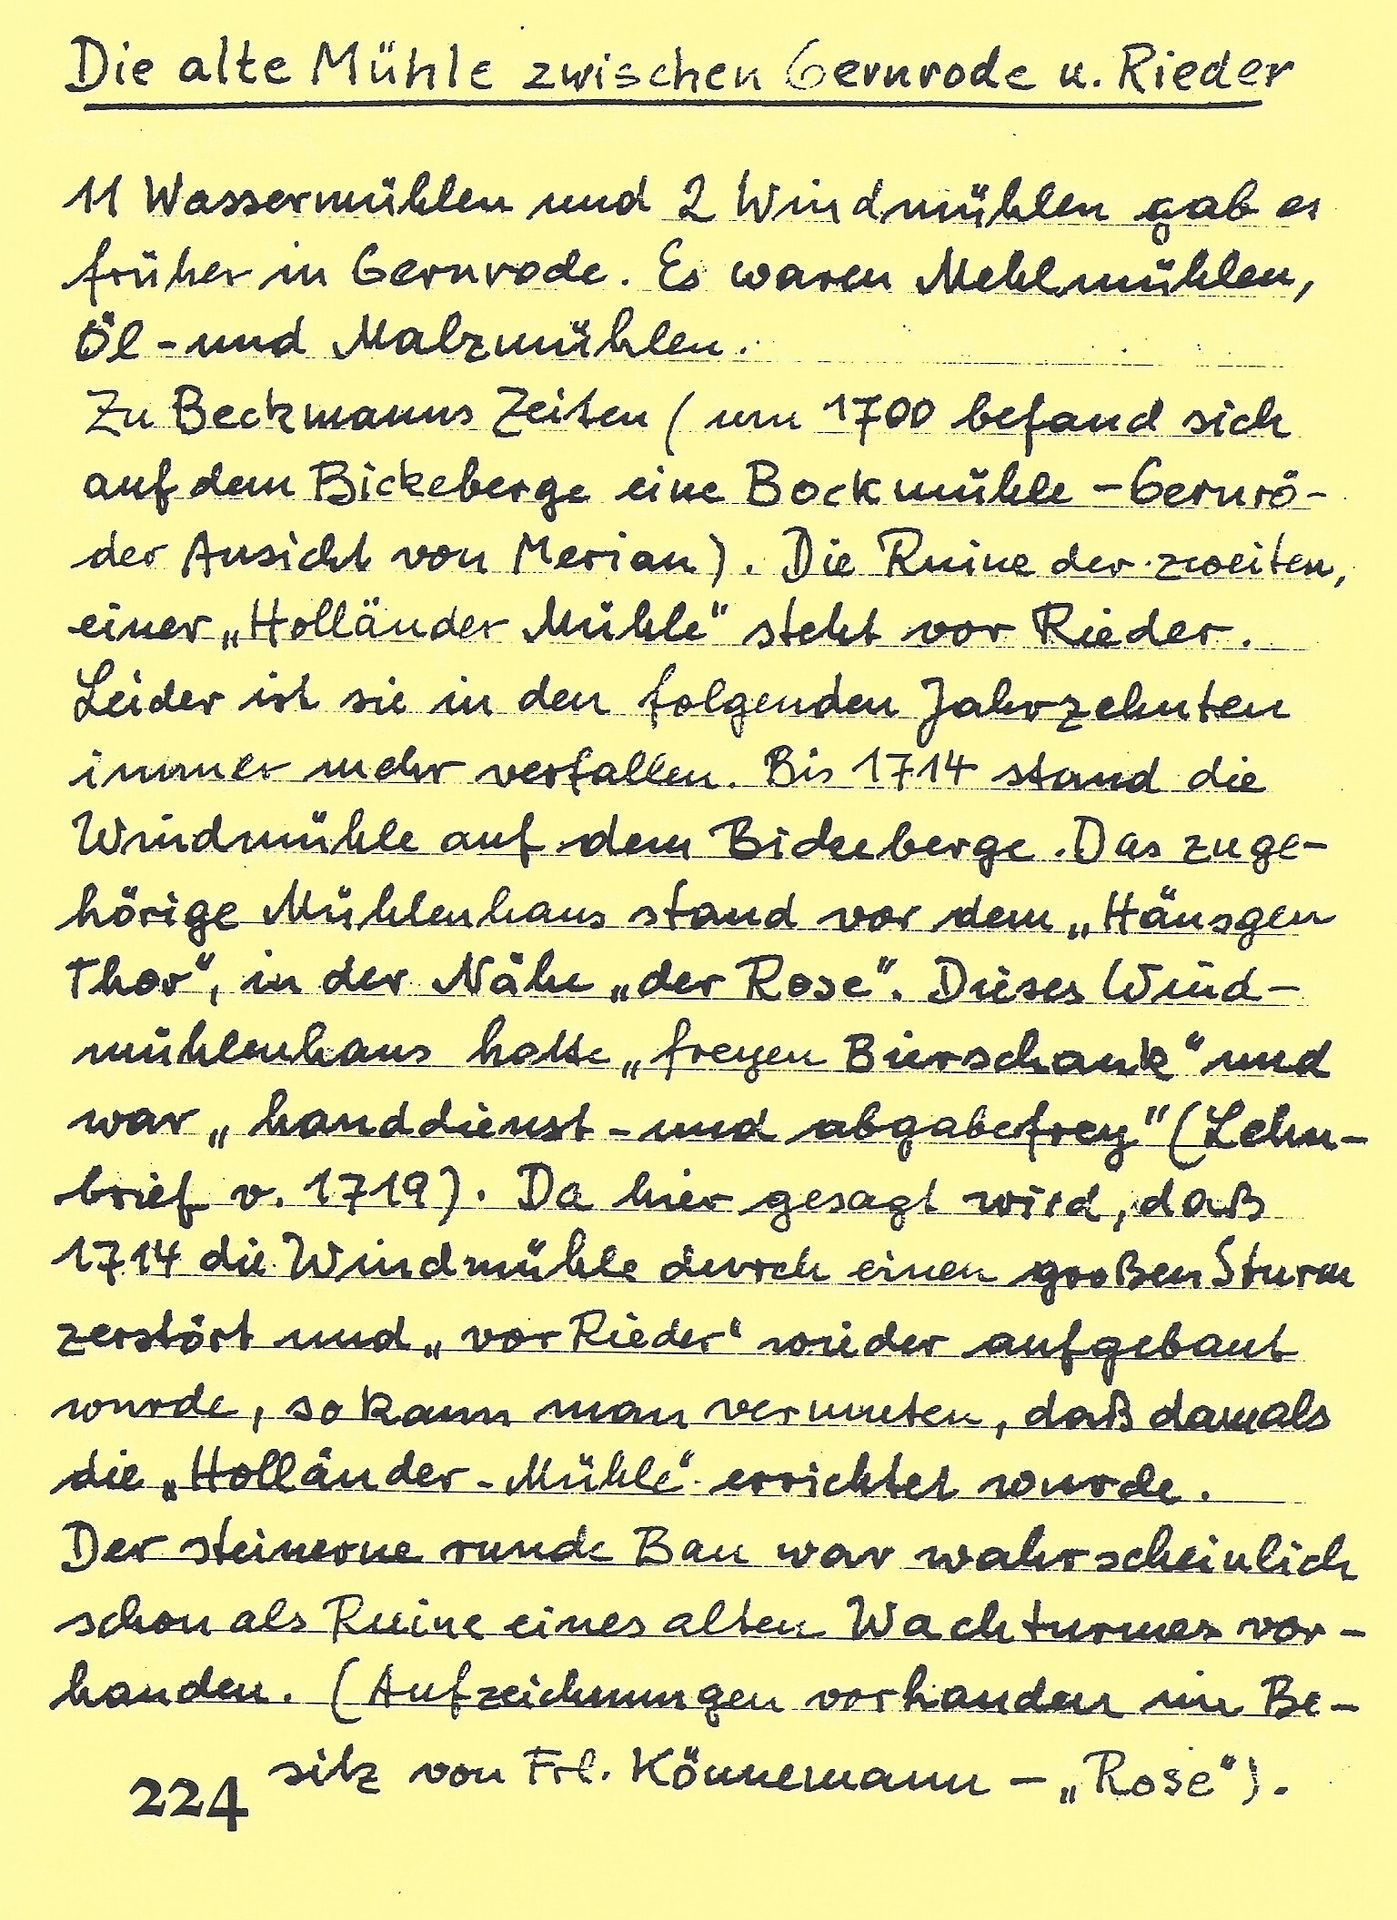 Die alte Mühle zwischen Gernrode u. Rieder
11 Wassermühlen und 2 Windmühlen gab es
früher in Gernrode. Es waren Mehlmühlen,
Öl- und Malzmühlen.
Zu Beckmanns Zeiten (um 1700 befand sich
auf dem Bickeberge eine Bockmühle - Gernrö-
der Ansicht von Merian). Die Ruine der zweiten,
einer „Holländer Mühle" steht vor Rieder.
Leider ist sie in den folgenden Jahrzehnten
immer mehr verfallen. Bis 1714 stand die
Windmühle auf dem Bickeberge. Das zuge-
hörige Mühlenhaus stand vor dem „Häusgen
Thor", in der Nähe „der Rose". Dieses Wind-
mühlenhaus hatte „freyen Bierschank" und
war „handdienst- und abgabefrey" (Lehn-
brief v. 1719). Da hier gesagt wird, daß
1714 die Windmühle durch einen großen Sturm
zerstört und „vor Rieder" wieder aufgebaut
wurde, so kann man vermuten, daß damals
die „Holländer-Mühle" errichtet wurde.
Der steinerne runde Bau war wahrscheinlich
schon als Ruine eines alten Wachturmes vor-
handen. (Aufzeichnungen vorhanden im Be-
sitz von Frl. Könnemann - „Rose").
224